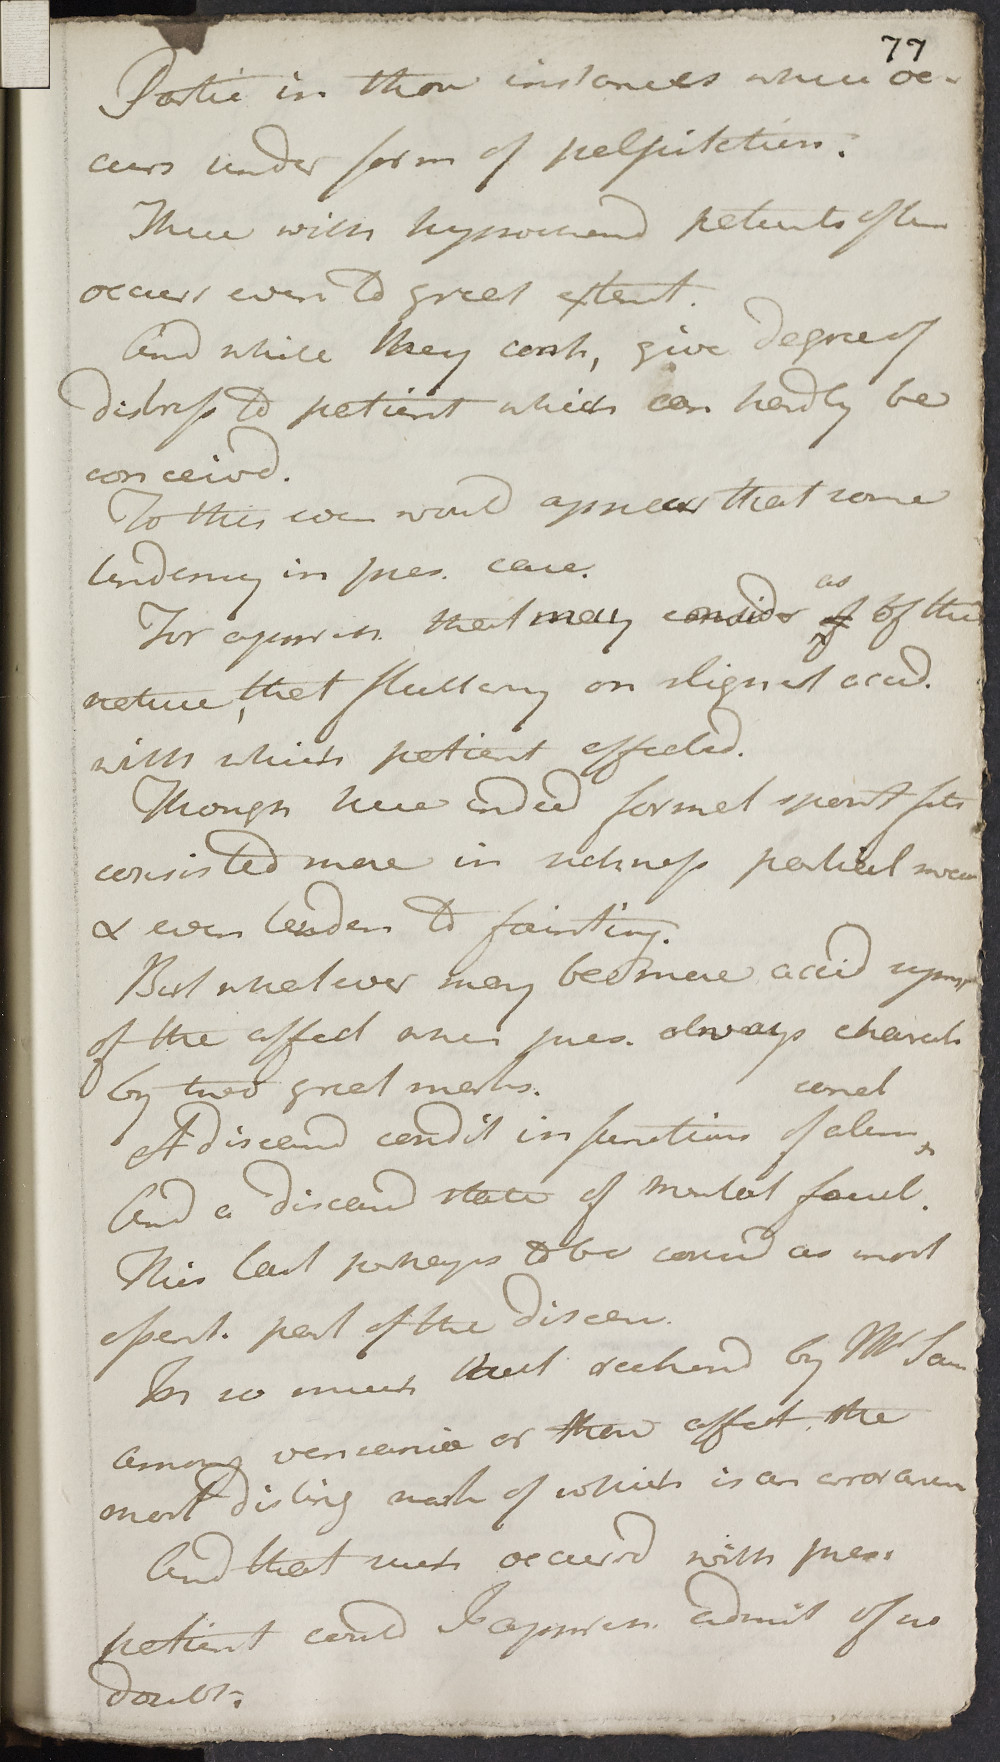 77
Partic in those instances where oc-
curs under form of palpitation.
These with hypochond patients often
occurs even to great extent.
And while they cont, give degree of
distress to patient which can hardly be
conceivd.
To this even would appear that some
tendency in pres. case.
For appreh. that may consider as of this
nature, that fluttering on slightest accid.
with which patient affected.
Though here indeed formal spont fits
consisted more in sickness partial
& even tenden to fainting.
But whatever may be mere accid symp
of the affect when pres. always charact
by two great marks.
canal
A diseased condit in functions of alim
And a diseasd state of mental facul.
This last perhaps to be consid as most
essent. part of the disease.
In so much that reckond by Mr Sau
among vesaniae or those affect. the
most disting mark of which is an error
And that such occurrd with pres.
patient could I appreh. admit of no
doubt.